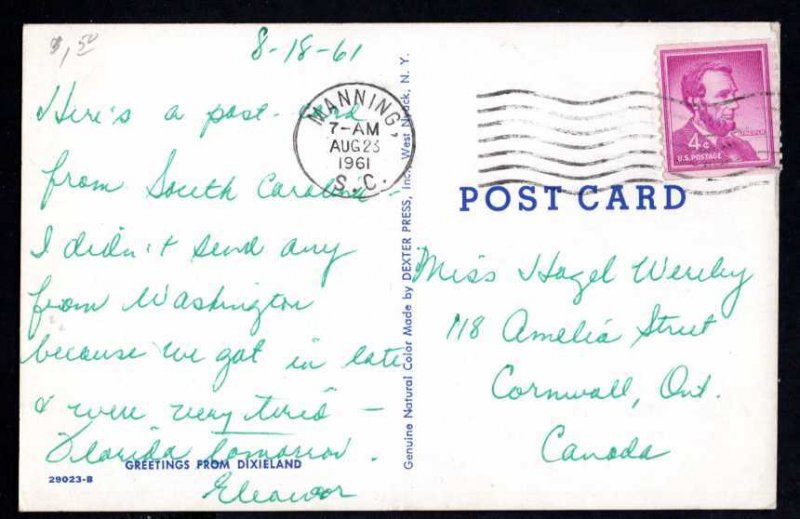 $1.50
8-18-61
Here's a post-card
from South Carolina -
I didn't send any
from Washington
because we got in late
& were very tired -
Florida tomorrow.
Eleanor
GREETINGS FROM DIXIELAND
29023-B
MANNING,
7-AM
AUG 23
1961
S. C.
Genuine Natural Color Made by DEXTER PRESS, Inc., West Nyack, N. Y.
LINCOLN
4¢
U.S. POSTAGE
POST CARD
Miss Hazel
118 Amelia Street
Cornwall, Ont.
Canada